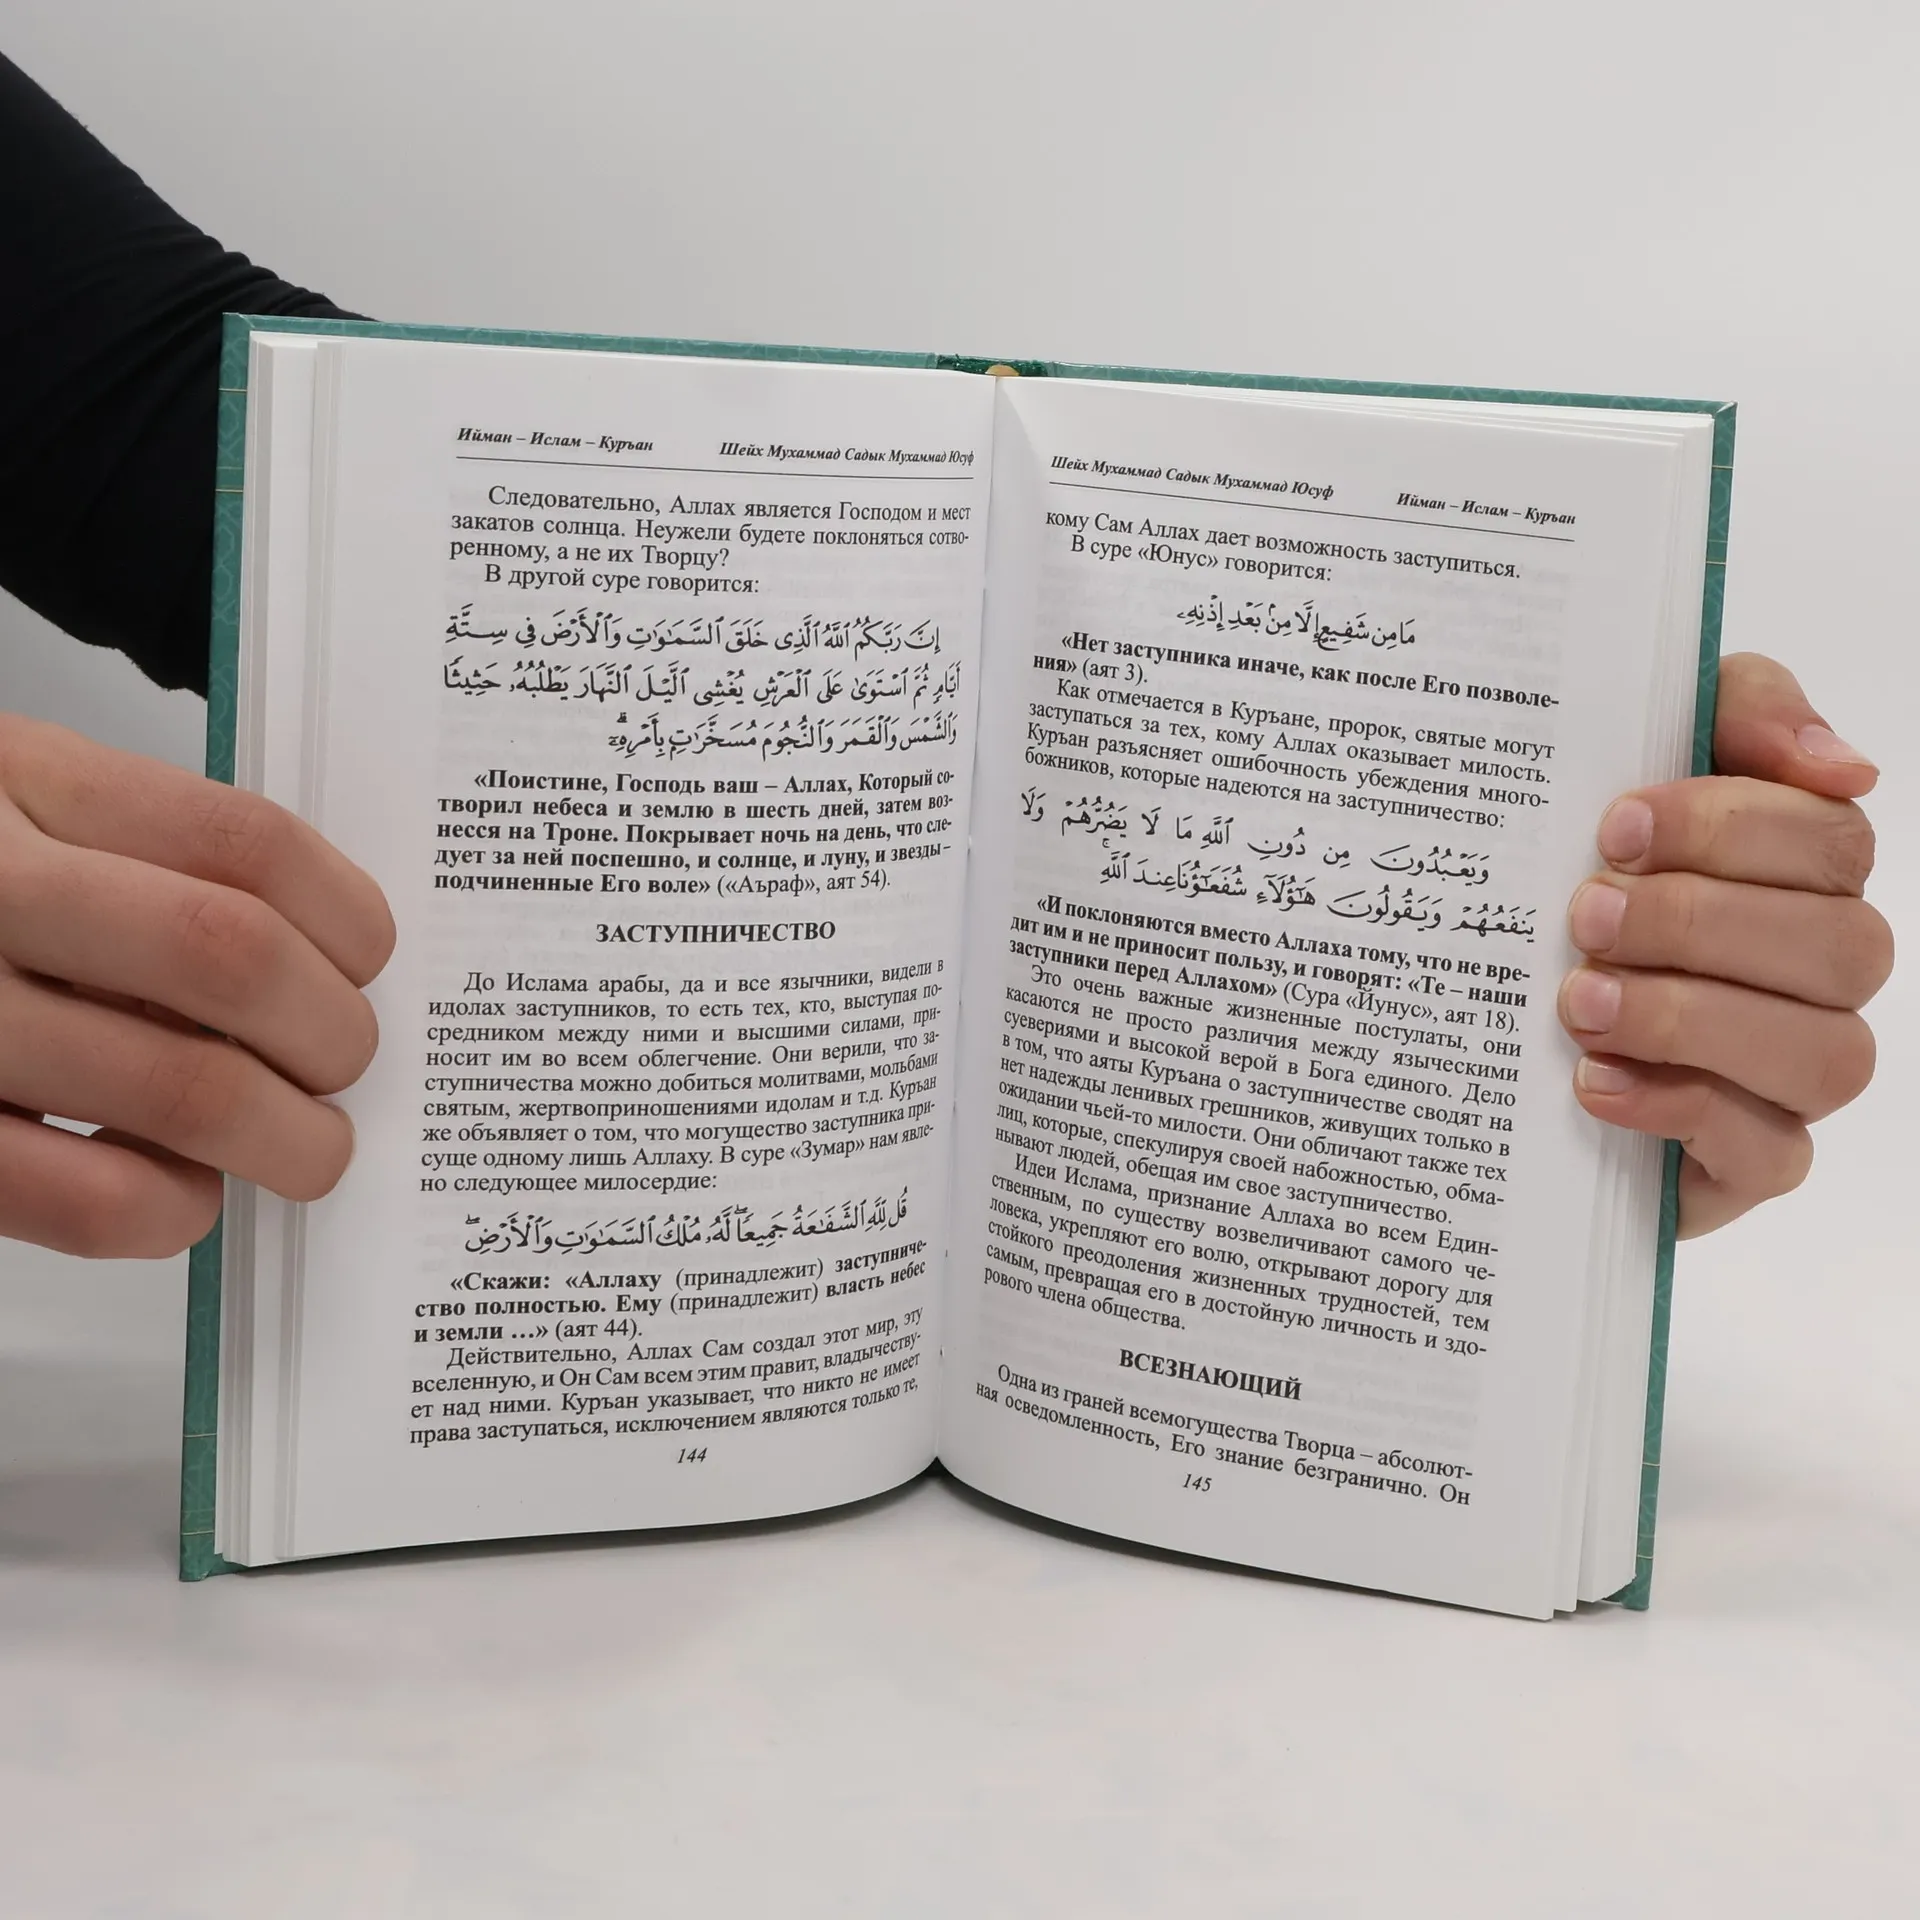 Ийман – Ислам – Куръан Шейх Мухаммад Садык Мухаммад Юсуф
Следовательно, Аллах является Господом и мест
закатов солнца. Неужели будете поклоняться сотво-
ренному, а не их Творцу?
В другой суре говорится:
إِنَّ رَبَّكُمُ ٱللَّهُ ٱلَّذِى خَلَقَ ٱلسَّمَٰوَٰتِ وَٱلْأَرْضَ فِى سِتَّةِ
أَيَّامٍ ثُمَّ ٱسْتَوَىٰ عَلَى ٱلْعَرْشِ يُغْشِى ٱلَّيْلَ ٱلنَّهَارَ يَطْلُبُهُۥ حَثِيثًا
وَٱلشَّمْسَ وَٱلْقَمَرَ وَٱلنُّجُومَ مُسَخَّرَٰتٍۭ بِأَمْرِهِۦٓ
«Поистине, Господь ваш – Аллах, Который со-
творил небеса и землю в шесть дней, затем воз-
несся на Троне. Покрывает ночь на день, что сле-
дует за ней поспешно, и солнце, и луну, и звезды –
подчиненные Его воле» («Аъраф», аят 54).
ЗАСТУПНИЧЕСТВО
До Ислама арабы, да и все язычники, видели в
идолах заступников, то есть тех, кто, выступая по-
средником между ними и высшими силами, при-
носит им во всем облегчение. Они верили, что за-
ступничества можно добиться молитвами, мольбами
святым, жертвоприношениями идолам и т.д. Куръан
же объявляет о том, что могущество заступника при-
суще одному лишь Аллаху. В суре «Зумар» нам явле-
но следующее милосердие:
قُل لِّلَّهِ ٱلشَّفَٰعَةُ جَمِيعًا ۖ لَّهُۥ مُلْكُ ٱلسَّمَٰوَٰتِ وَٱلْأَرْضِ ۖ
«Скажи: «Аллаху (принадлежит) заступниче-
ство полностью. Ему (принадлежит) власть небес
и земли ...» (аят 44).
Действительно, Аллах Сам создал этот мир, эту
вселенную, и Он Сам всем этим правит, владычеству-
ет над ними. Куръан указывает, что никто не имеет
права заступаться, исключением являются только те,
144
Шейх Мухаммад Садык Мухаммад Юсуф Ийман – Ислам – Куръан
кому Сам Аллах дает возможность заступиться.
В суре «Юнус» говорится:
مَا مِن شَفِيعٍ إِلَّا مِنۢ بَعْدِ إِذْنِهِۦ
«Нет заступника иначе, как после Его позволе-
ния» (аят 3).
Как отмечается в Куръане, пророк, святые могут
заступаться за тех, кому Аллах оказывает милость.
Куръан разъясняет ошибочность убеждения много-
божников, которые надеются на заступничество:
وَيَعْبُدُونَ مِن دُونِ ٱللَّهِ مَا لَا يَضُرُّهُمْ وَلَا
يَنفَعُهُمْ وَيَقُولُونَ هَٰٓؤُلَآءِ شُفَعَٰٓؤُنَا عِندَ ٱللَّهِ ۚ
«И поклоняются вместо Аллаха тому, что не вре-
дит им и не приносит пользу, и говорят: «Те – наши
заступники перед Аллахом» (Сура «Йунус», аят 18).
Это очень важные жизненные постулаты, они
касаются не просто различия между языческими
суевериями и высокой верой в Бога единого. Дело
в том, что аяты Куръана о заступничестве сводят на
нет надежды ленивых грешников, живущих только в
ожидании чьей-то милости. Они обличают также тех
лиц, которые, спекулируя своей набожностью, обма-
нывают людей, обещая им свое заступничество.
Идеи Ислама, признание Аллаха во всем Един-
ственным, по существу возвеличивают самого че-
ловека, укрепляют его волю, открывают дорогу для
стойкого преодоления жизненных трудностей, тем
самым, превращая его в достойную личность и здо-
рового члена общества.
ВСЕЗНАЮЩИЙ
Одна из граней всемогущества Творца – абсолют-
ная осведомленность, Его знание безгранично. Он
145